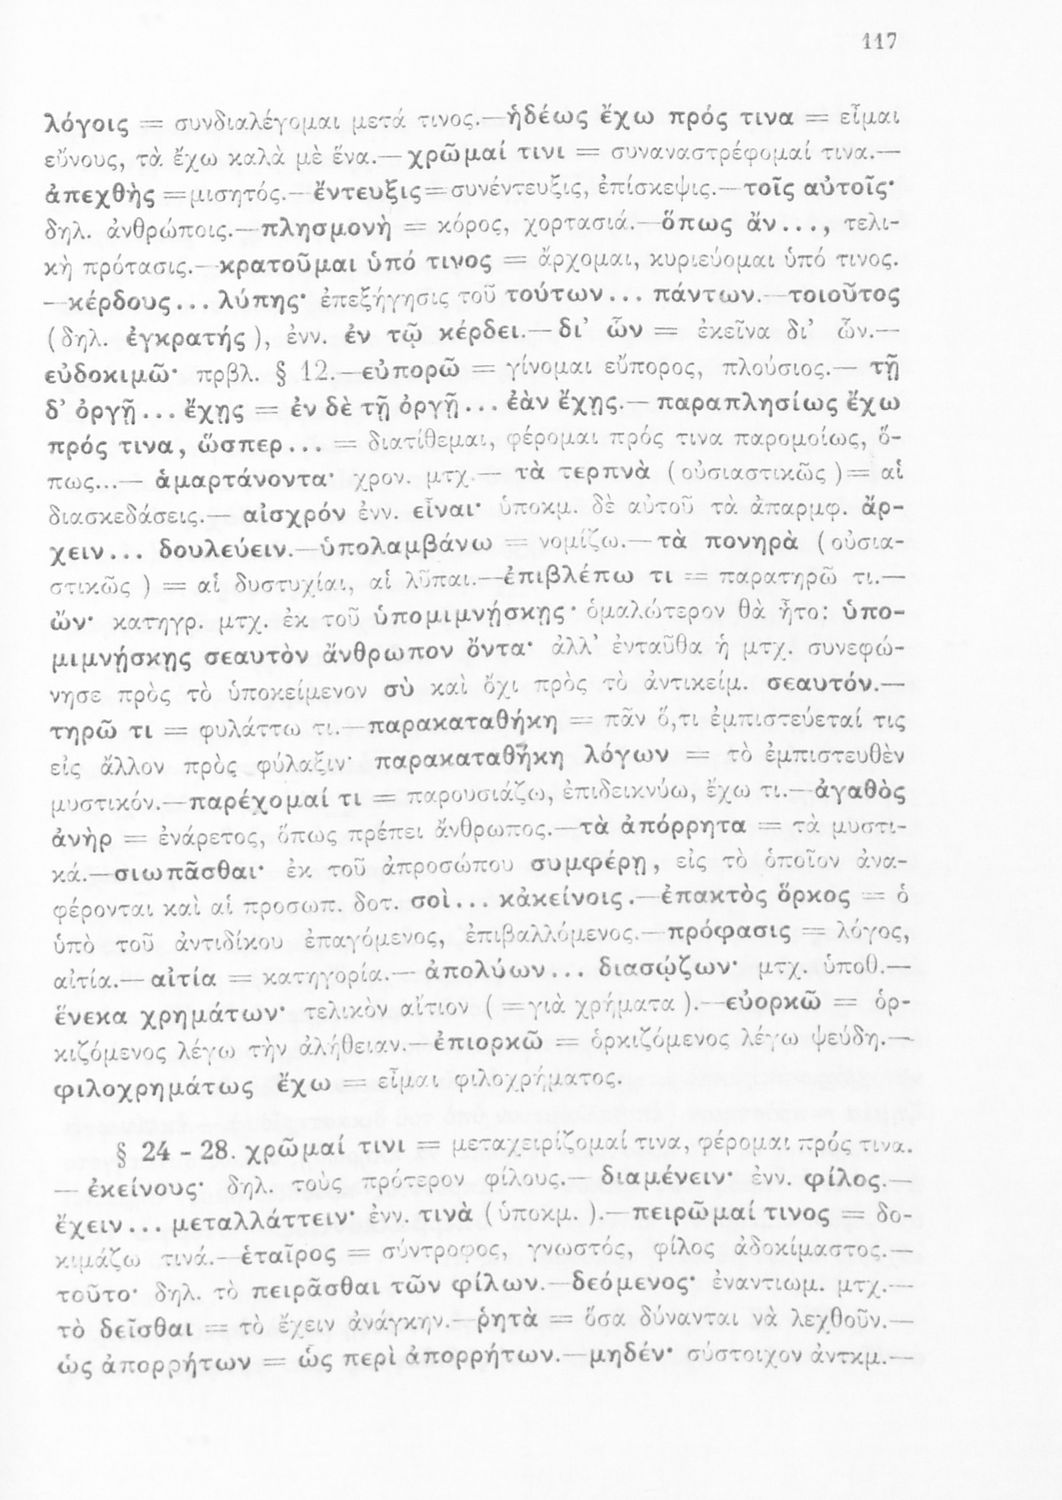 117
λόγοις = συνδιαλέγομαι μετά τινος.—ἡδέως ἔχω πρός τινα = εἶμαι
εὔνους, τὰ ἔχω καλὰ μὲ ἕνα.—χρῶμαί τινι = συναναστρέφομαί τινα.—
ἀπεχθὴς =μισητός.—ἔντευξις=συνέντευξις, ἐπίσκεψις.—τοῖς αὐτοῖς·
δηλ. ἀνθρώποις.—πλησμονὴ = κόρος, χορτασιά.—ὅπως ἄν..., τελι-
κὴ πρότασις.—κρατοῦμαι ὑπό τινος = ἄρχομαι, κυριεύομαι ὑπό τινος.
—κέρδους... λύπης· ἐπεξήγησις τοῦ τούτων... πάντων.—τοιοῦτος
(δηλ. ἐγκρατής), ἐνν. ἐν τῷ κέρδει.—δι’ ὧν = ἐκεῖνα δι’ ὧν.—
εὐδοκιμῶ· πρβλ. § 12.—εὐπορῶ = γίνομαι εὔπορος, πλούσιος.— τῇ
δ’ ὀργῇ... ἔχῃς = ἐν δὲ τῇ ὀργῇ... ἐὰν ἔχῃς.— παραπλησίως ἔχω
πρός τινα, ὥσπερ... = διατίθεμαι, φέρομαι πρός τινα παρομοίως, ὅ-
πως...— ἁμαρτάνοντα· χρον. μτχ.— τὰ τερπνὰ (οὐσιαστικῶς)= αἱ
διασκεδάσεις.— αἰσχρόν ἐνν. εἶναι· ὑποκμ. δὲ αὐτοῦ τὰ ἀπαρμφ. ἄρ-
χειν... δουλεύειν.—ὑπολαμβάνω = νομίζω.—τὰ πονηρὰ (οὐσια-
στικῶς ) = αἱ δυστυχίαι, αἱ λῦπαι.—ἐπιβλέπω τι = παρατηρῶ τι.—
ὤν· κατηγρ. μτχ. ἐκ τοῦ ὑπομιμνήσκῃς· ὁμαλώτερον θὰ ἦτο: ὑπο-
μιμνήσκῃς σεαυτὸν ἄνθρωπον ὄντα· ἀλλ’ ἐνταῦθα ἡ μτχ. συνεφώ-
νησε πρὸς τὸ ὑποκείμενον σὺ καὶ ὄχι πρὸς τὸ ἀντικείμ. σεαυτόν.—
τηρῶ τι = φυλάττω τι.—παρακαταθήκη = πᾶν ὅ,τι ἐμπιστεύεταί τις
εἰς ἄλλον πρὸς φύλαξιν· παρακαταθήκη λόγων = τὸ ἐμπιστευθὲν
μυστικόν.—παρέχομαί τι = παρουσιάζω, ἐπιδεικνύω, ἔχω τι.—ἀγαθὸς
ἀνὴρ = ἐνάρετος, ὅπως πρέπει ἄνθρωπος.—τὰ ἀπόρρητα = τὰ μυστι-
κά.—σιωπᾶσθαι· ἐκ τοῦ ἀπροσώπου συμφέρῃ, εἰς τὸ ὁποῖον ἀνα-
φέρονται καὶ αἱ προσωπ. δοτ. σοὶ... κἀκείνοις.—ἐπακτὸς ὅρκος = ὁ
ὑπὸ τοῦ ἀντιδίκου ἐπαγόμενος, ἐπιβαλλόμενος.—πρόφασις = λόγος,
αἰτία.—αἰτία = κατηγορία.— ἀπολύων... διασῴζων· μτχ. ὑποθ.—
ἕνεκα χρημάτων· τελικὸν αἴτιον (=γιὰ χρήματα).—εὐορκῶ = ὁρ-
κιζόμενος λέγω τὴν ἀλήθειαν.—ἐπιορκῶ = ὁρκιζόμενος λέγω ψεύδη.—
φιλοχρημάτως ἔχω = εἶμαι φιλοχρήματος.
§ 24 - 28. χρῶμαί τινι = μεταχειρίζομαί τινα, φέρομαι πρός τινα.
— ἐκείνους· δηλ. τοὺς πρότερον φίλους.— διαμένειν· ἐνν. φίλος.—
ἔχειν... μεταλλάττειν· ἐνν. τινὰ (ὑποκμ. ).—πειρῶμαί τινος = δο-
κιμάζω τινά.—ἑταῖρος = σύντροφος, γνωστός, φίλος ἀδοκίμαστος.—
τοῦτο· δηλ. τὸ πειρᾶσθαι τῶν φίλων.—δεόμενος· ἐναντιωμ. μτχ.—
τὸ δεῖσθαι = τὸ ἔχειν ἀνάγκην.—ῥητὰ = ὅσα δύνανται νὰ λεχθοῦν.—
ὡς ἀπορρήτων = ὡς περὶ ἀπορρήτων.—μηδέν· σύστοιχον ἀντκμ.—